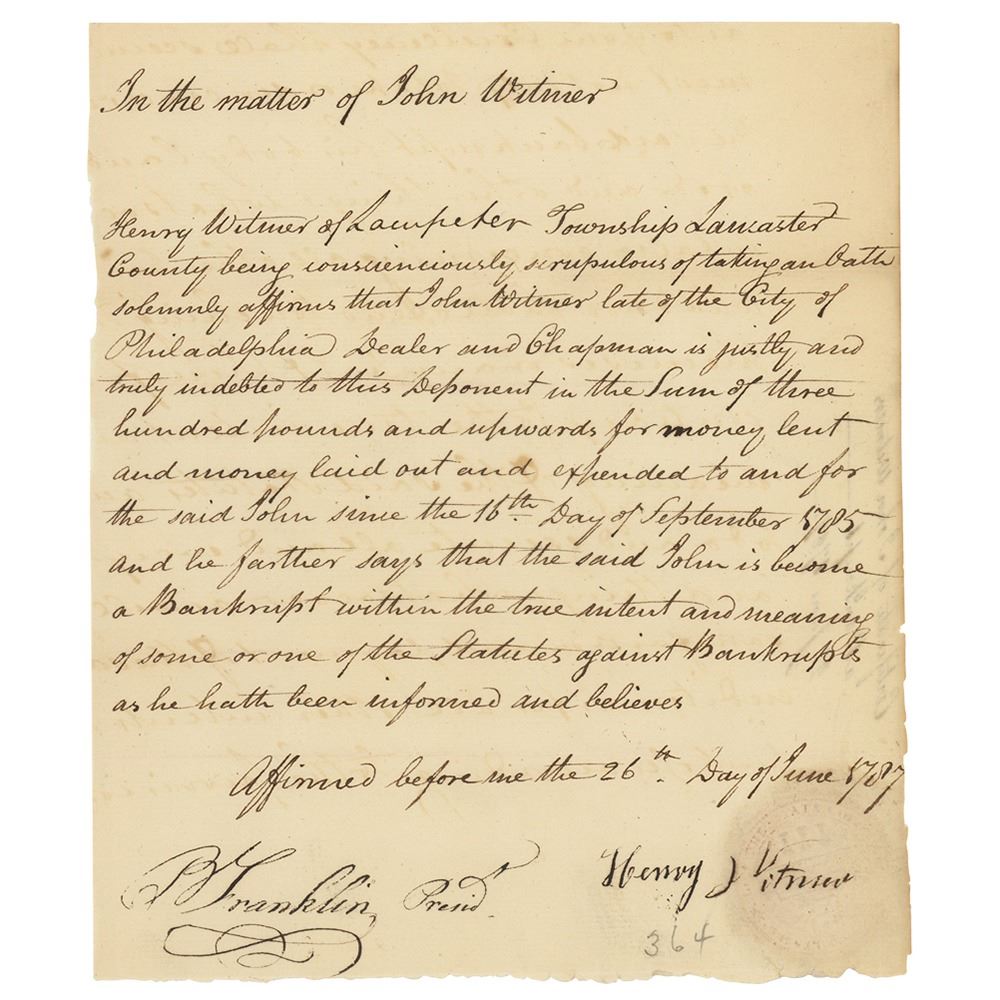 In the matter of John Witmer
Henry Witmer of Lampeter Township Lancaster
County being conscienciously scrupulous of taking an Oath
solemnly affirms that John Witmer late of the City of
Philadelphia Dealer and Chapman is justly and
truly indebted to this Deponent in the Sum of three
hundred pounds and upwards for money lent
and money laid out and expended to and for
the said John since the 16th Day of September 1785
and he farther says that the said John is become
a Bankrupt within the true intent and meaning
of some or one of the Statutes against Bankrupts
as he hath been informed and believes
Affirmed before me the 26th Day of June 1787
B Franklin, Presidt
Henry Witmer
364